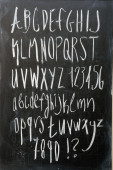 ABCDEFGHIJ
KLMNOPQRST
UVWXYZ123456
abcdefghijklmn
opqrstuvwxyz
7890!?